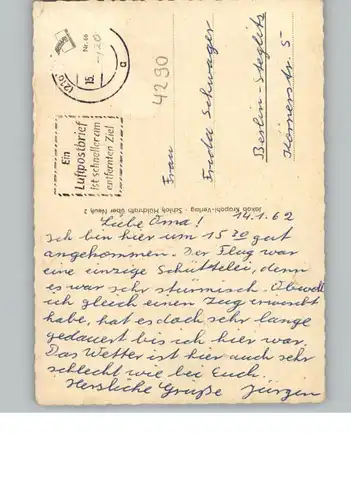 Ein
Luftpostbrief
ist schneller am
entfernten Ziel
4290
Frau
Frieda Schwager
Berlin-Steglitz
Körnerstr. 5
Jakob Krapohl-Verlag - Schloß Hülchrath über Neuß 2
Liebe Oma! 14.1.62
Ich bin hier um 15 20 gut
angekommen. Der Flug war
eine einzige Schüttelei, denn
es war sehr stürmisch. Obwohl
ich gleich einen Zug erwischt
habe, hat es doch sehr lange
gedauert bis ich hier war.
Das Wetter ist hier auch sehr
schlecht wie bei Euch.
Herzliche Grüße Jürgen